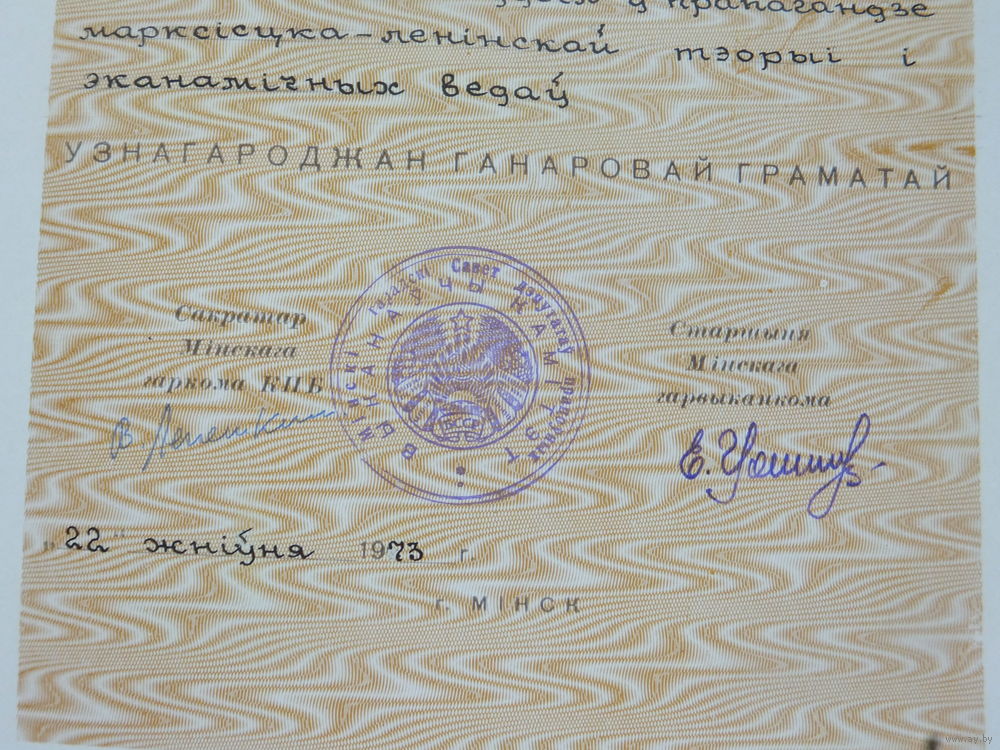 ў прапагандзе
марксісцка-ленінскай тэорыі і
эканамічных ведаў
УЗНАГАРОДЖАН ГАНАРОВАЙ ГРАМАТАЙ
Сакратар
Мінскага
гаркома КПБ
Старшыня
Мінскага
гарвыканкома
Мінскі гарадскі Савет дэпутатаў працоўных
ВЫКАНАЎЧЫ КАМІТЭТ
БССР
"22" жніўня 1973 г.
г. МІНСК
www.ay.by